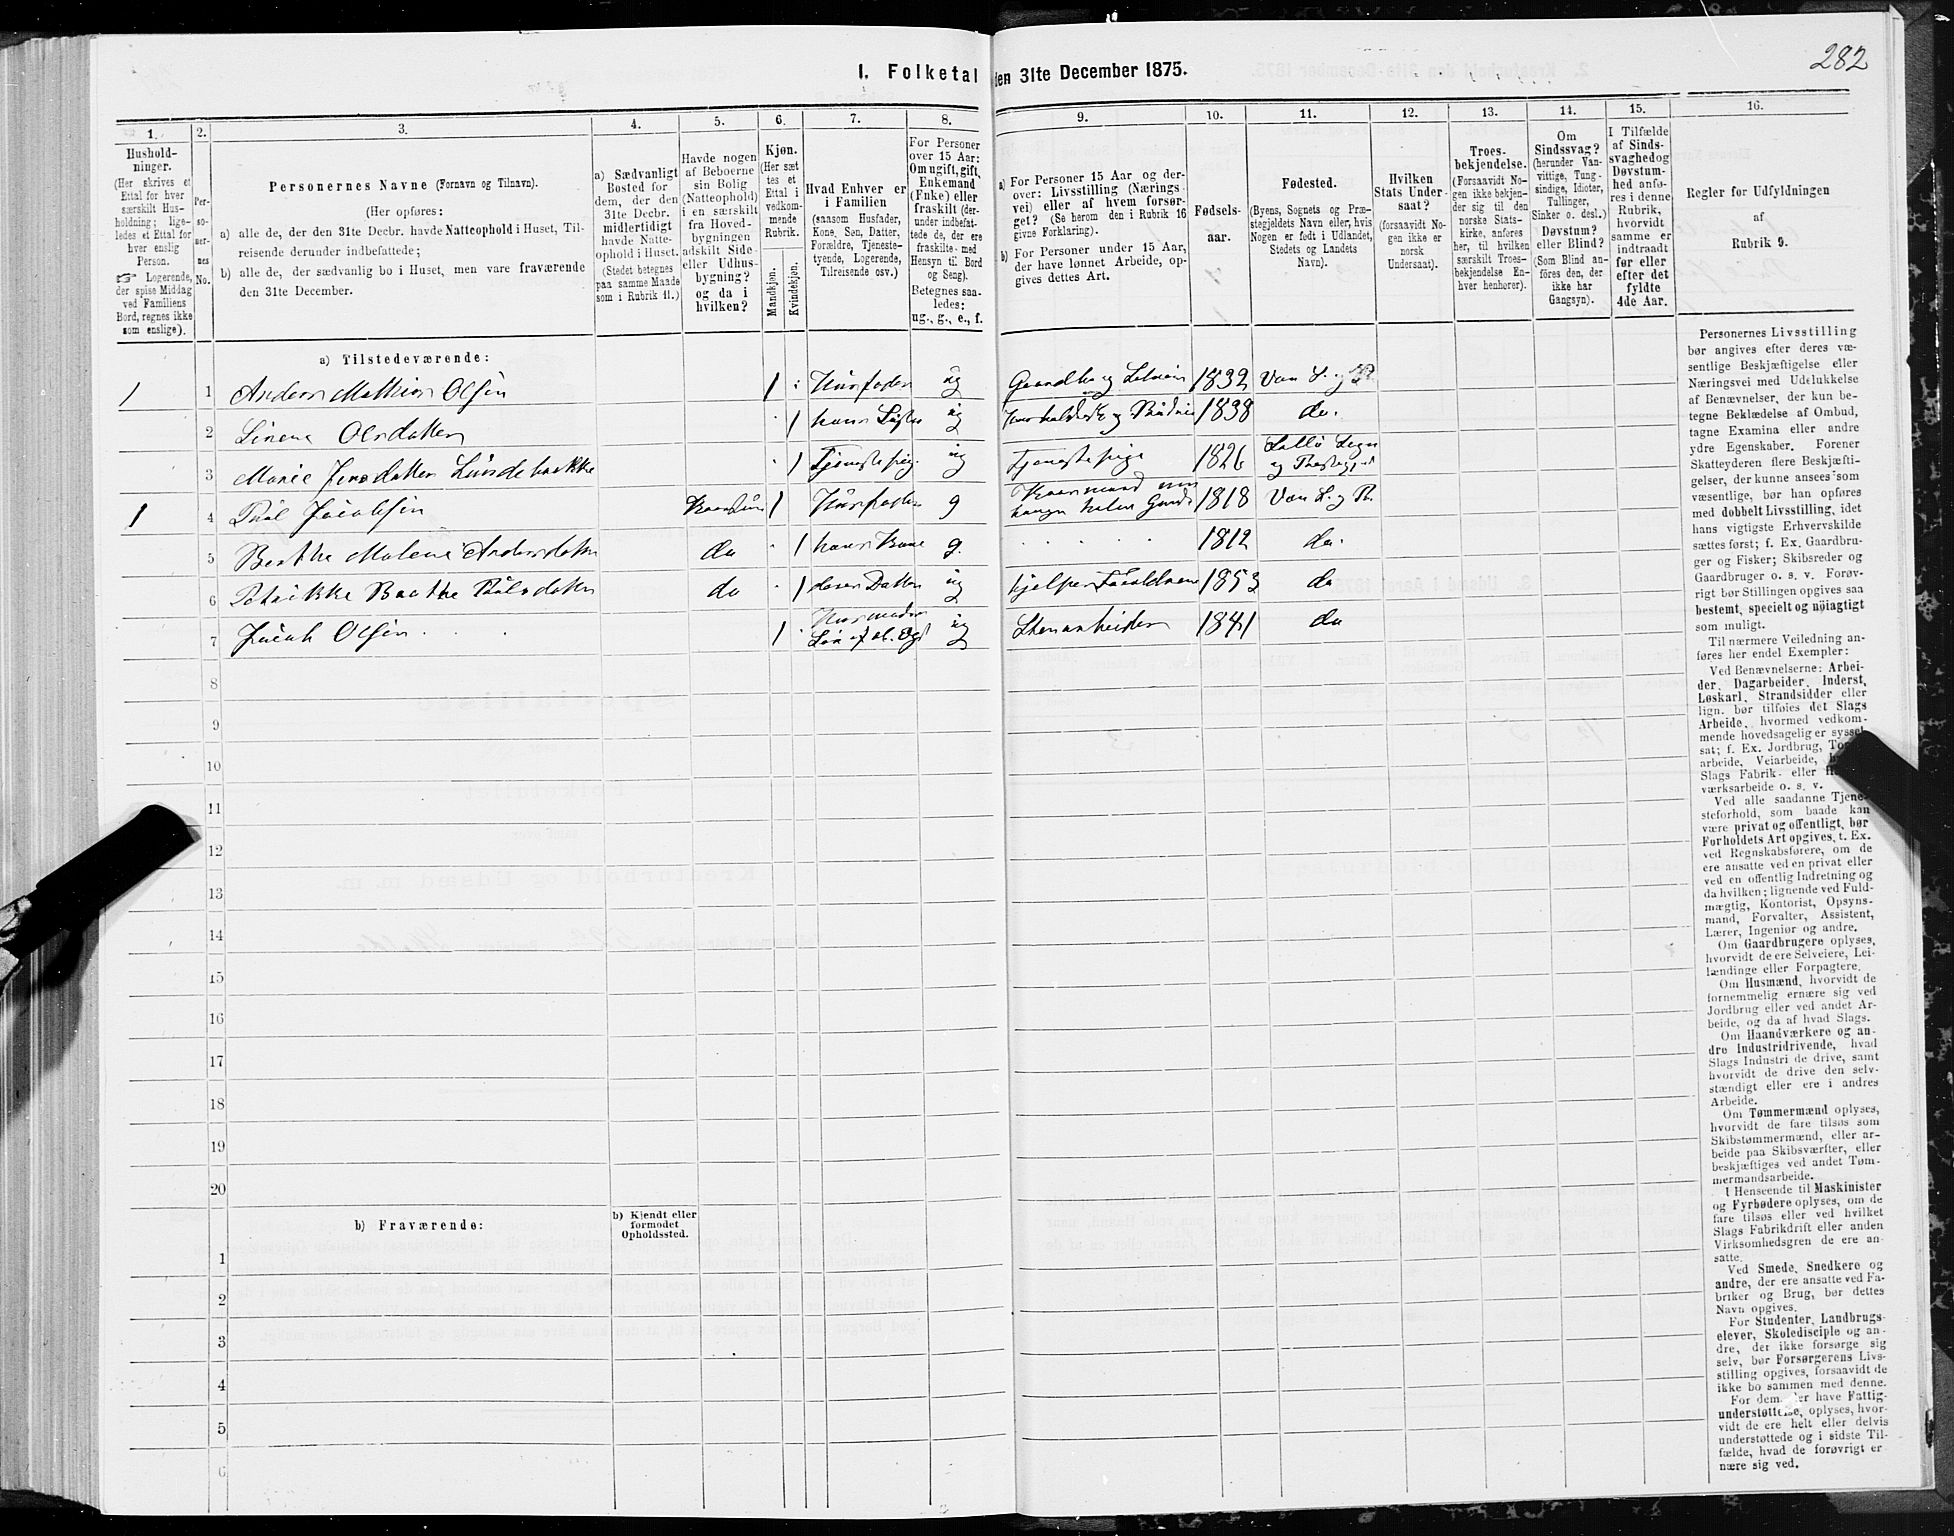 282
I. Folketal den 31te December 1875.
1. 2. 3. 4. 5. 6. 7. 8. 9. 10. 11. 12. 13. 14. 15. 16.
Hushold-
ninger.
(Her skrives et
Ettal for hver
særskilt Hus-
holdning; lige-
ledes et Ettal for
hver enslig
Person.
☞ Logerende,
der spise Middag
ved Familiens
Bord, regnes ikke
som enslige).
Per-
so-
ner-
nes
No.
Personernes Navne (Fornavn og Tilnavn).
(Her opføres:
a) alle de, der den 31te Decbr. havde Natteophold i Huset, Til-
reisende derunder indbefattede;
b) alle de, der sædvanlig bo i Huset, men vare fraværende
den 31te December.
a) Sædvanligt
Bosted for
dem, der den
31te Decbr.
midlertidigt
havde Natte-
ophold i Huset.
(Stedet betegnes
paa samme Maade
som i Rubrik 11.)
Havde nogen
af Beboerne
sin Bolig
(Natteophold)
i en særskilt
fra Hoved-
bygningen
adskilt Side-
eller Udhus-
bygning?
og da i
hvilken?
Kjøn.
(Her sæt-
tes et
Ettal i
vedkom-
mende
Rubrik.
Mandkjøn.
Kvindekjøn.
Hvad Enhver er
i Familien
(saasom Husfader,
Kone, Søn, Datter,
Forældre, Tjeneste-
tyende, Logerende,
Tilreisende osv.)
For Personer
over 15 Aar:
Om ugift, gift,
Enkemand
(Enke) eller
fraskilt (der-
under indbefat-
tede de, der ere
fraskilte med
Hensyn til Bord
og Seng).
Betegnes saa-
ledes:
ug., g., e., f.
a) For Personer 15 Aar og der-
over: Livsstilling (Nærings-
vei) eller af hvem forsør-
get? (Se herom den i Rubrik 16
givne Forklaring).
b) For Personer under 15 Aar,
der have lønnet Arbeide, op-
gives dettes Art.
Fødsels-
aar.
Fødested.
(Byens, Sognets og Præ-
stegjeldets Navn eller, hvis
Nogen er født i Udlandet,
Stedets og Landets
Navn).
Hvilken
Stats Under-
saat?
(forsaavidt No-
gen ikke er
norsk
Undersaat).
Troes-
bekjendelse.
(Forsaavidt No-
gen ikke bekjen-
der sig til den
norske Stats-
kirke, anføres
her, til hvilken
særskilt Troes-
bekjendelse En-
hver henhører).
Om
Sindssvag?
(herunder Van-
vittige, Tung-
sindige, Idioter,
Tullinger,
Sinker o. desl.)
Døvstum?
eller Blind?
(Som Blind an-
føres den, der
ikke har
Gangsyn).
I Tilfælde
af Sinds-
svaghed og
Døvstum-
hed anfø-
res i denne
Rubrik,
hvorvidt
samme er
indtraadt
før eller
efter det
fyldte
4de Aar.
Regler for Udfyldningen
af
Rubrik 9.
a) Tilstedeværende:
1 1 Anders Mathias Olsen 1 Husfader ug 1832
2 Olsdatter 1 hans Søster ug 1838 do.
3 Marie Jensdatter 1 Tjenestepige ug Tjenestepige 1826
1 4 Pål Jacobsen 1 Husfader g 1818
5 Berthe Malene Andersdatter do 1 hans Kone g. 1812 do.
6 Berthe Pålsdatter do 1 deres Datter ug hjelper Forældrene 1853 do
7 Jacob Olsen 1 ug Stenarbeider 1841 do
8
9
10
11
12
13
14
15
16
17
18
19
20
b) Fraværende:
b) Kjendt eller
formodet
Opholdssted.
1
2
3
4
5
6
Personernes Livsstilling
bør angives efter deres væ-
sentlige Beskjæftigelse eller
Næringsvei med Udelukkelse
af Benævnelser, der kun be-
tegne Beklædelse af Ombud,
tagne Examina eller andre
ydre Egenskaber. Forener
Skatteyderen flere Beskjæfti-
gelser, der kunne ansees som
væsentlige, bør han opføres
med dobbelt Livsstilling, idet
hans vigtigste Erhvervskilde
sættes først; f. Ex. Gaardbru-
ger og Fisker; Skibsreder og
Gaardbruger o. s. v. Forøv-
rigt bør Stillingen opgives saa
bestemt, specielt og nøiagtigt
som muligt.
Til nærmere Veiledning an-
føres her endel Exempler:
Ved Benævnelserne: Arbei-
der, Dagarbeider, Inderst,
Løskarl, Strandsidder eller
lign. bør tilføies det Slags
Arbeide, hvormed vedkom-
mende hovedsagelig er syssel-
sat; f. Ex. Jordbrug,
arbeide, Veiarbeide,
Slags Fabrik- eller
værksarbeide o. s. v.
Ved alle saadanne Tjene-
steforhold, som baade kan
være privat og offentligt, bør
Forholdets Art opgives, t. Ex.
ved Regnskabsførere, om de
ere ansatte ved en privat eller
ved en offentlig Indretning og
da hvilken; lignende ved Fuld-
mægtig, Kontorist, Opsyns-
mand, Forvalter, Assistent,
Lærer, Ingeniør og andre.
Om Gaardbrugere oplyses,
hvorvidt de ere Selveiere, Lei-
lændinge eller Forpagtere.
Om Husmænd, hvorvidt de
fornemmelig ernære sig ved
Jordbrug eller ved andet Ar-
beide, og da af hvad Slags.
Om Haandværkere og an-
dre Industridrivende, hvad
Slags Industri de drive, samt
hvorvidt de drive den selv-
stændigt eller ere i andres
Arbeide.
Om Tømmermænd oplyses,
hvorvidt de fare tilsøs som
Skibstømmermænd, eller ar-
beide paa Skibsværfter, eller
beskjæftiges ved andet Tøm-
mermandsarbeide.
I Henseende til Maskinister
og Fyrbødere oplyses, om de
fare tilsøs eller ved hvilket
Slags Fabrikdrift eller anden
Virksomhedsgren de ere an-
satte.
Ved Smede, Snedkere og
andre, der ere ansatte ved Fa-
briker og Brug, bør dettes
Navn opgives.
For Studenter, Landbrugs-
elever, Skoledisciple og an-
dre, der ikke forsørge sig
selv, bør Forsørgerens Livs-
stilling opgives, forsaavidt de
ikke bo sammen med denne.
For dem, der have Fattig-
understøttelse, oplyses, hvor-
vidt de ere helt eller delvis
understøttede og i sidste Til-
fælde, hvad de forøvrigt er-
nære sig ved.